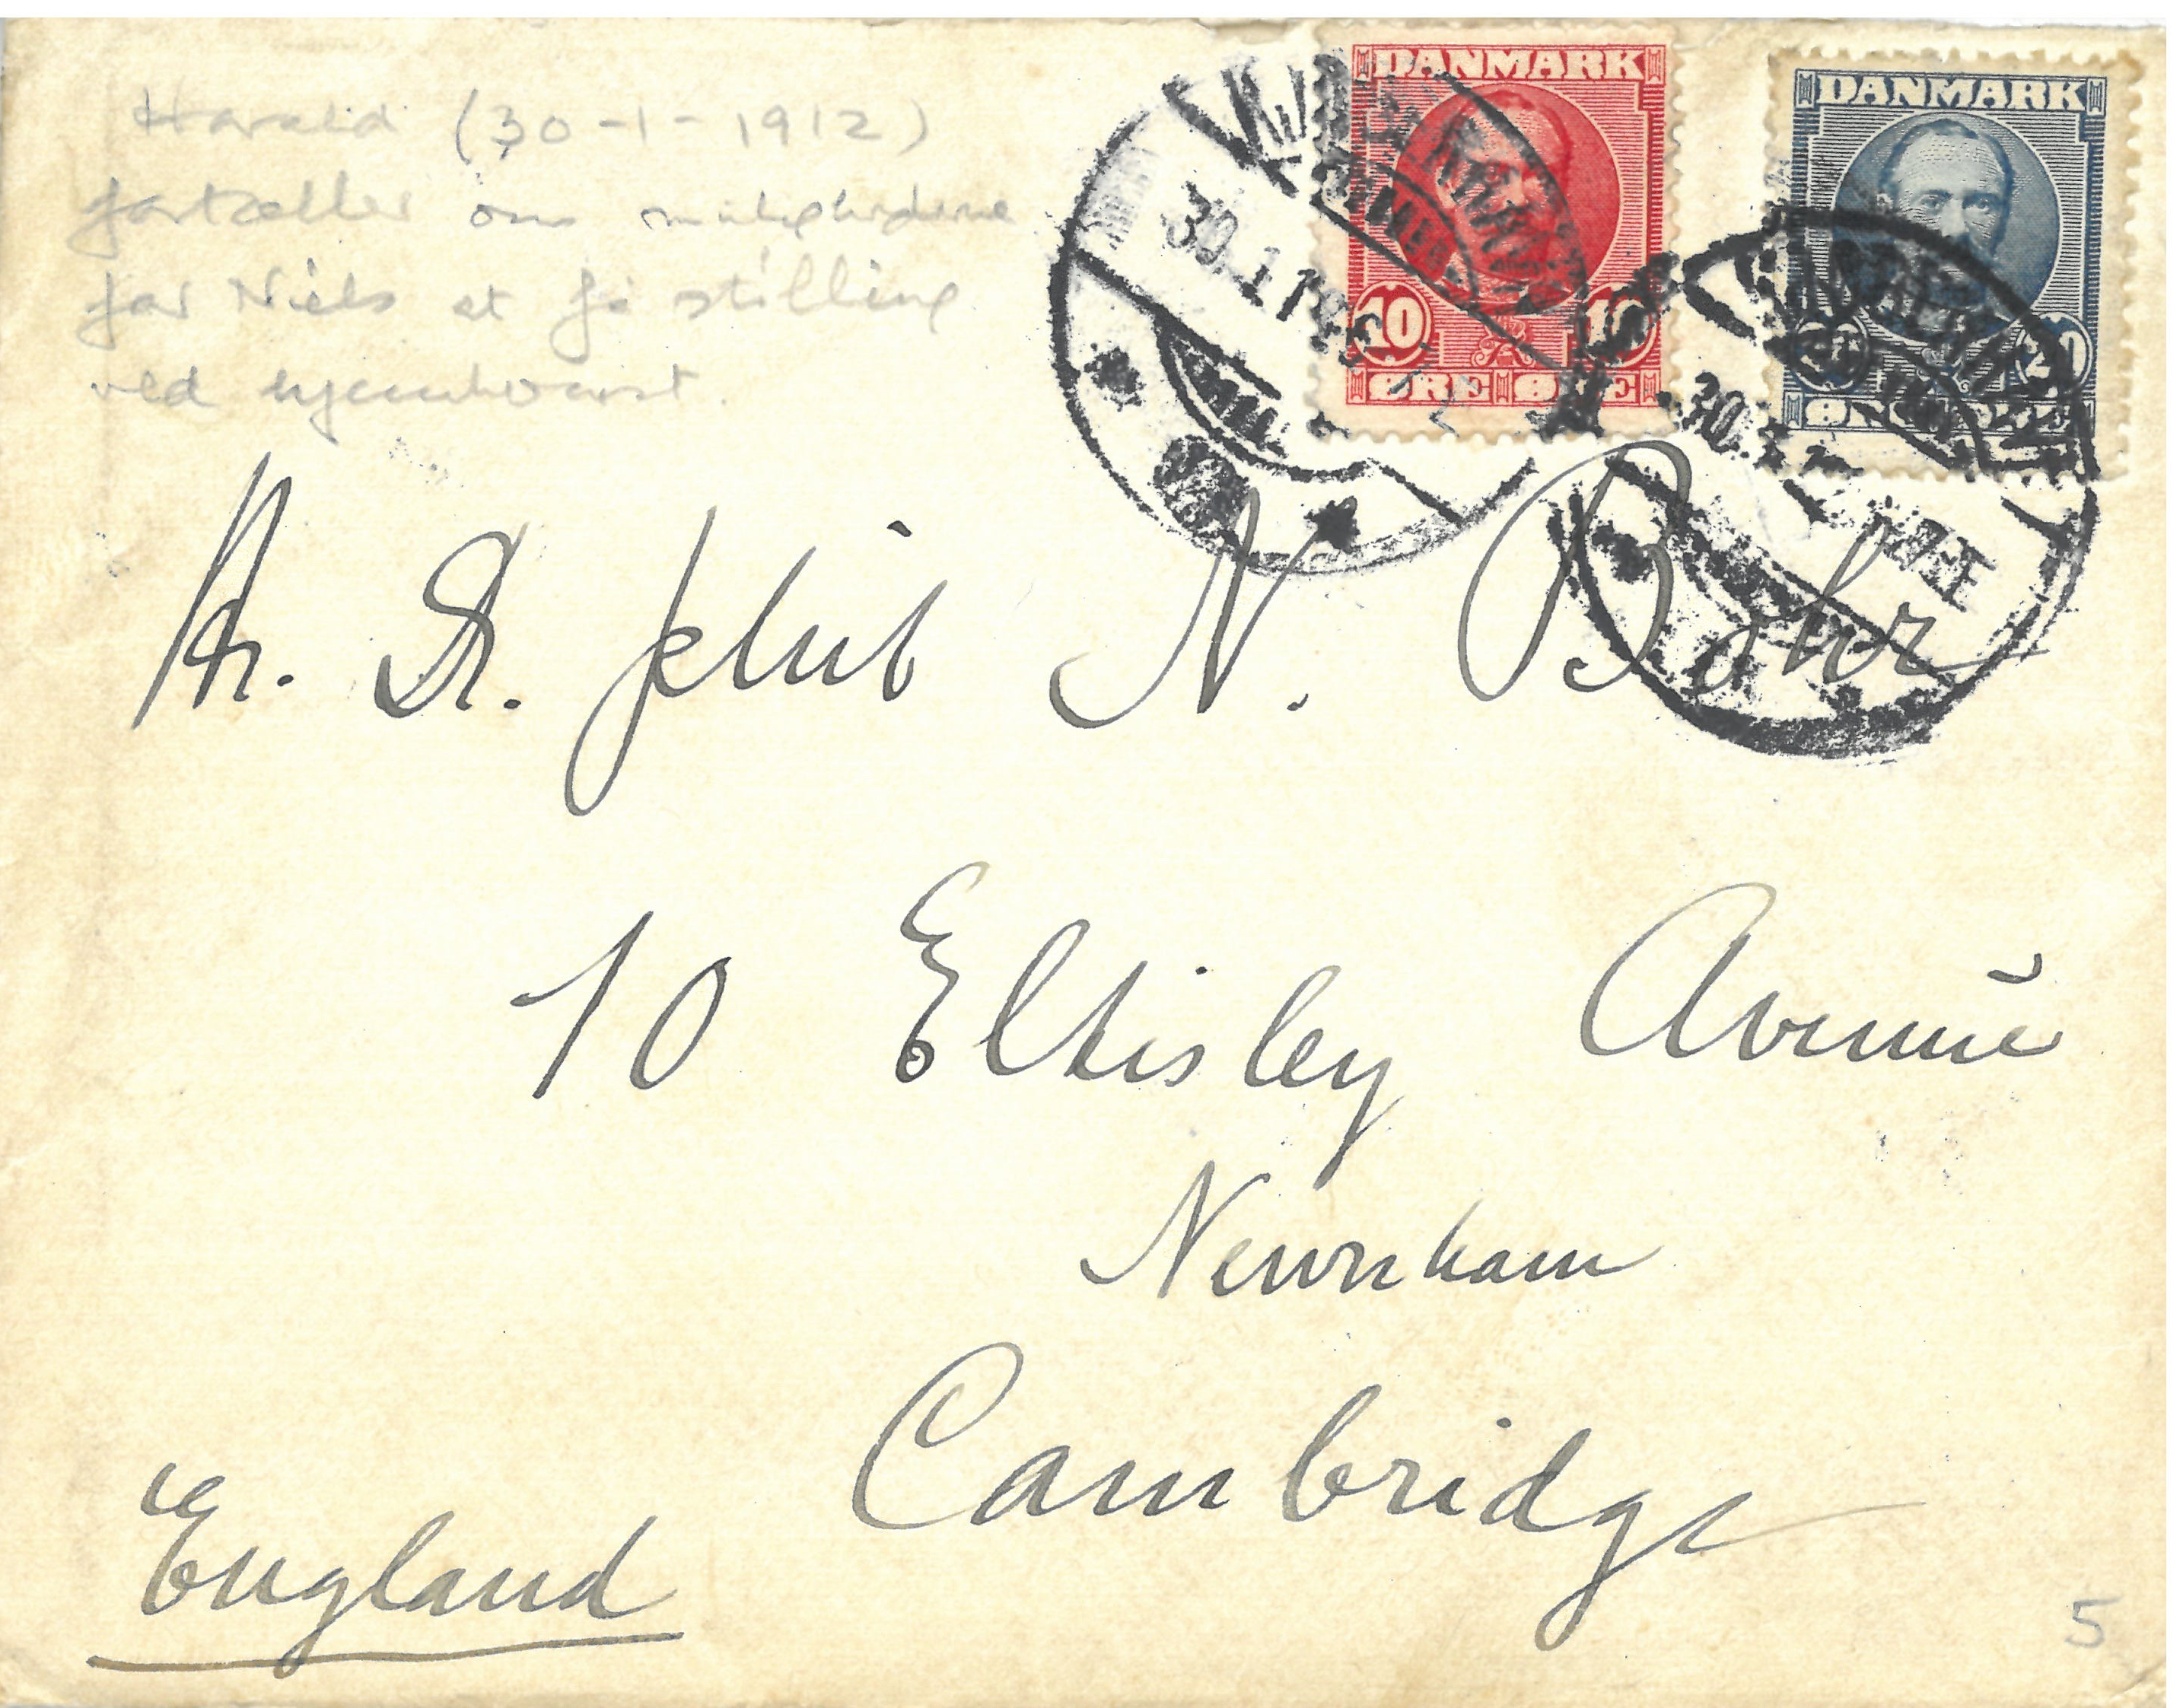 Harald (30-1-1912)
fortæller om mulighederne
for Niels at få stilling
ved hjemkomst.
DANMARK
10 10
ØRE ØRE
DANMARK
20
30.1
30.1
Hr. Dr. phil N. Bohr
10 Eltisley Avenue
Newnham
Cambridge
England
5